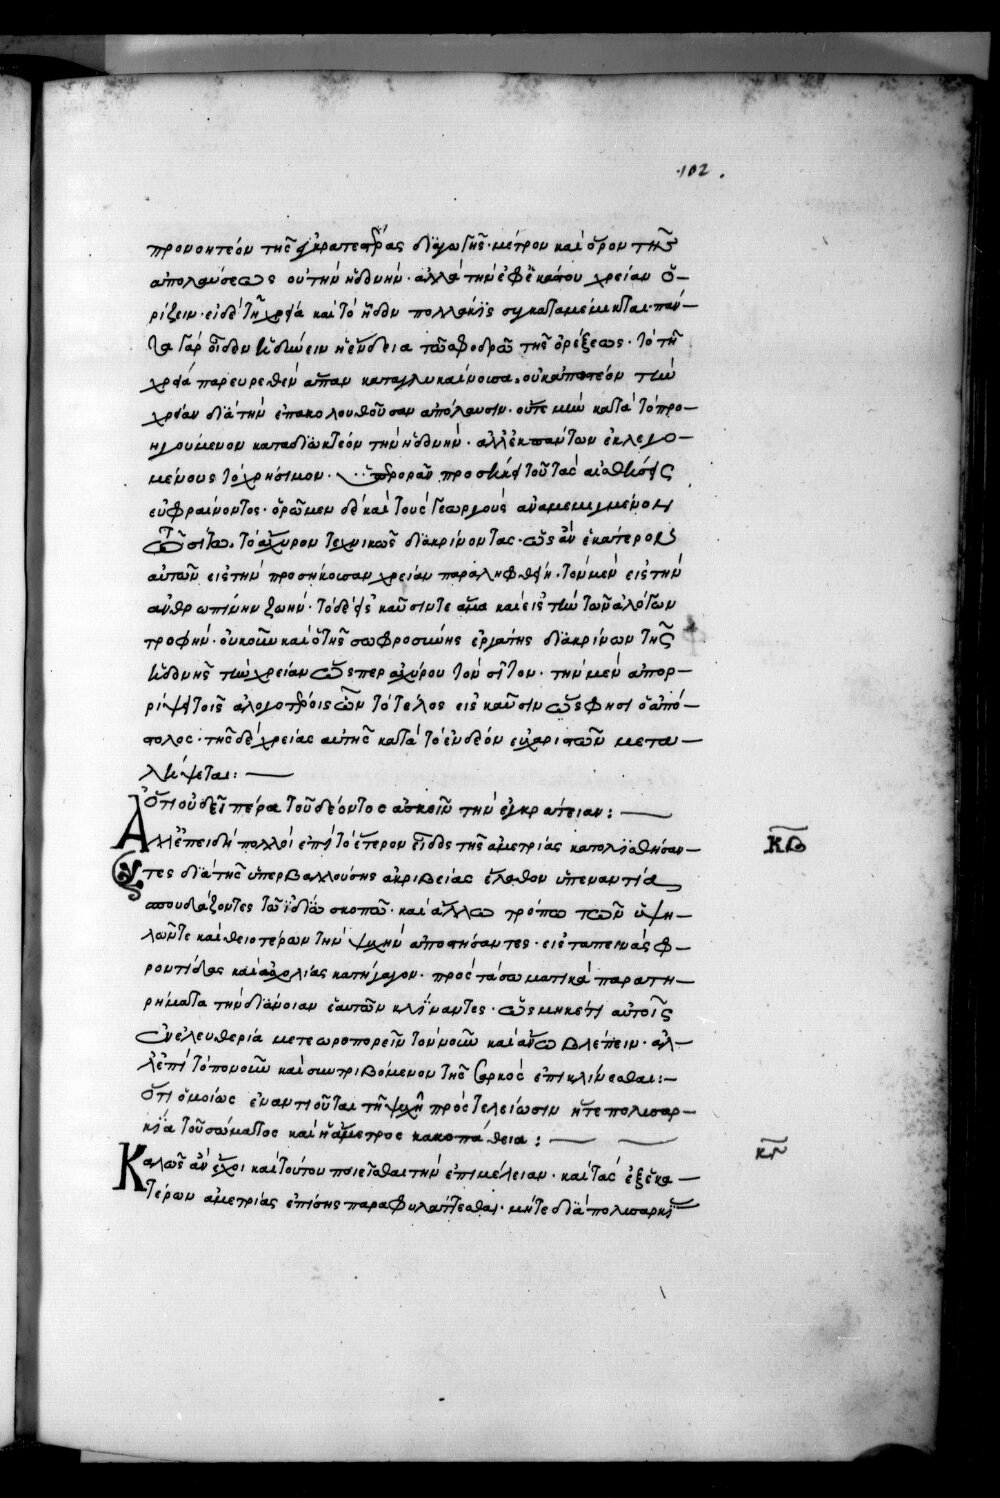 ·102.
προνοητέον τῆς ἐγκρατεστέρας διαγωγῆς· μέτρον καὶ ὅρον τῆς
ἀπολαύσεως οὐ τὴν ἡδονήν· ἀλλὰ τὴν ἐφ' ἑκάστου χρείαν ὁ-
ρίζειν· εἰ δὲ τῇ χρείᾳ καὶ τὸ ἡδὺ πολλάκις συγκαταμέμικται· πάν-
τα γὰρ οἶδεν ἡδύνειν ἡ ἔνδεια τῷ σφοδρῷ τῆς ὀρέξεως· τὸ τῇ
χρείᾳ παρευρεθὲν ἅπαν καταγλυκαίνουσα. οὐκ ἀπωστέον τὴν
χρείαν διὰ τὴν ἐπακολουθοῦσαν ἀπόλαυσιν· οὔτε μὴν κατὰ τὸ προ-
ηγούμενον καταδιωκτέον τὴν ἡδονήν· ἀλλ' ἐκ πάντων ἐκλεγο-
μένους τὸ χρήσιμον· ὑπερορᾶν προσήκει τοῦ τὰς αἰσθήσεις
εὐφραίνοντος· ὁρῶμεν δὲ καὶ τοὺς γεωργοὺς ἀναμεμιγμένον
τῷ σίτῳ. τὸ ἄχυρον τεχνικῶς διακρίνοντας· ὡς ἂν ἑκάτερον
αὐτῶν εἰς τὴν προσήκουσαν χρείαν παραληφθείη· τὸν μὲν εἰς τὴν
ἀνθρωπίνην ζωήν· τὸ δὲ εἰς καῦσίν τε ἅμα καὶ εἰς τὴν τῶν ἀλόγων
τροφήν· οὐκοῦν καὶ ὁ τῆς σωφροσύνης ἐργάτης διακρίνων τῆς
ἡδονῆς τὴν χρείαν ὥσπερ ἀχύρου τὸν σῖτον· τὴν μὲν ἀπορ-
ρίψει τοῖς ἀλογωτέροις ὧν τὸ τέλος εἰς καῦσιν ὥς φησι ὁ ἀπό-
στολος· τῆς δὲ χρείας αὐτῆς κατὰ τὸ ἐνδέον εὐχαριστῶν μετα-
λήψεται:
Ὅτι οὐ δεῖ πέρα τοῦ δέοντος ἀσκεῖν τὴν ἐγκράτειαν:
Ἀλλ' ἐπειδὴ πολλοὶ ἐπὶ τὸ ἕτερον εἶδος τῆς ἀμετρίας κατολισθήσαν-
τες διὰ τῆς ὑπερβαλλούσης ἀκριβείας ἔλαθον ὑπεναντία
σπουδάζοντες τῷ ἰδίῳ σκοπῷ· καὶ ἄλλῳ τρόπῳ τῶν ὑψη-
λῶν τε καὶ θειοτέρων τὴν ψυχὴν ἀποστήσαντες· εἰς ταπεινὰς φ-
ροντίδας καὶ ἀσχολίας κατήγαγον· πρὸς τὰ σωματικὰ παρατη-
ρήματα τὴν διάνοιαν ἑαυτῶν κλίναντες· ὡς μηκέτι αὐτοῖς
ἐν ἐλευθερίᾳ μετεωροπορεῖν τὸν νοῦν καὶ ἄνω βλέπειν· ἀλ-
λ' ἐπὶ τὸ πονοῦν καὶ συντριβόμενον τῆς σαρκὸς ἐπικλίνεσθαι:-
Ὅτι ὁμοίως ἐναντιοῦται τῇ ψυχῇ πρὸς τελείωσιν ἥ τε πολυσαρ-
κία τοῦ σώματος καὶ ἡ ἄμετρος κακοπάθεια:
Καλῶς ἂν ἔχοι καὶ τούτου ποιεῖσθαι τὴν ἐπιμέλειαν· καὶ τὰς ἐξ ἑκα-
τέρων ἀμετρίας ἐπίσης παραφυλάττεσθαι· μήτε διὰ πολυσαρκί
κβ
κγ